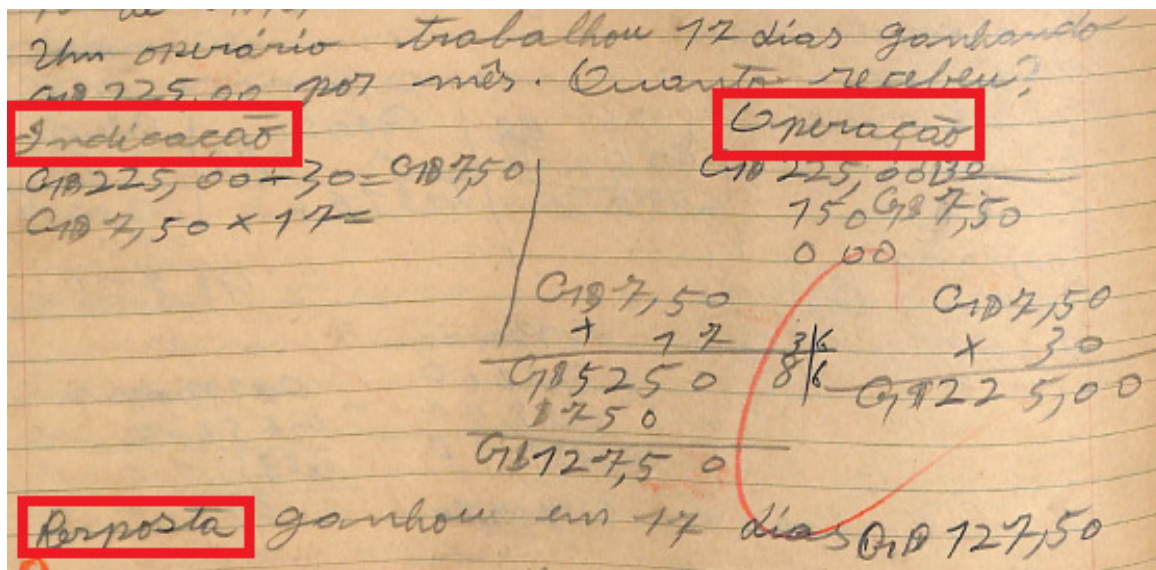 Um operário trabalhou 17 dias ganhando
Cr$ 225,00 por mês. Quanto recebeu?
Indicação
Operação
Cr$ 225,00 ÷ 30 = Cr$ 7,50
Cr$ 7,50 × 17 =
Cr$ 225,00 |30
150 Cr$ 7,50
000
Cr$ 7,50
× 17
Cr$ 5250
$ 750
Cr$ 127,50
3|6
8|6
Cr$ 7,50
× 30
Cr$ 225,00
Resposta ganhou em 17 dias Cr$ 127,50